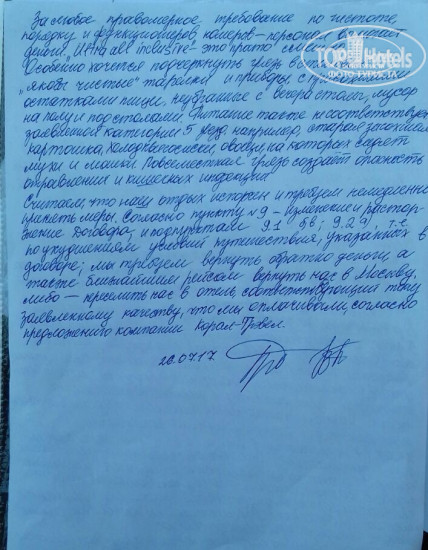 За любое правомерное требование по чистоте,
порядку и функционированию номеров - персонал
деньги. Ultra all inclusive - это просто
TOPHotels
ФОТО ТУРИСТА
Особенно хочется подчеркнуть грязь в
"якобы чистые" тарелки и приборы, с
остатками пищи, неубранные с вечера столы, мусор
на полу и под столами. Питание также не соответствует
заявленной категории 5 например, старая
картошка, овощи, на которых сидят
мухи и мошки. Повсеместная грязь создает опасность
отравления и кишечных инфекций.
Считаем, что наш отдых испорчен и требуем немедленно
принять меры. Согласно пункту №9 - Изменение и растор-
жение Договора; и подпунктам 9.1 9.2.4, т.е.
по ухудшениям условий путешествия, указанных в
договоре; мы требуем вернуть обратно деньги, а
также ближайшим рейсом вернуть нас в Москву.
либо - переселить нас в отель, соответствующий типу
заявленному качеству, что мы оплачивали, согласно
предложению компании Корал-Тревел.
26.07.17.